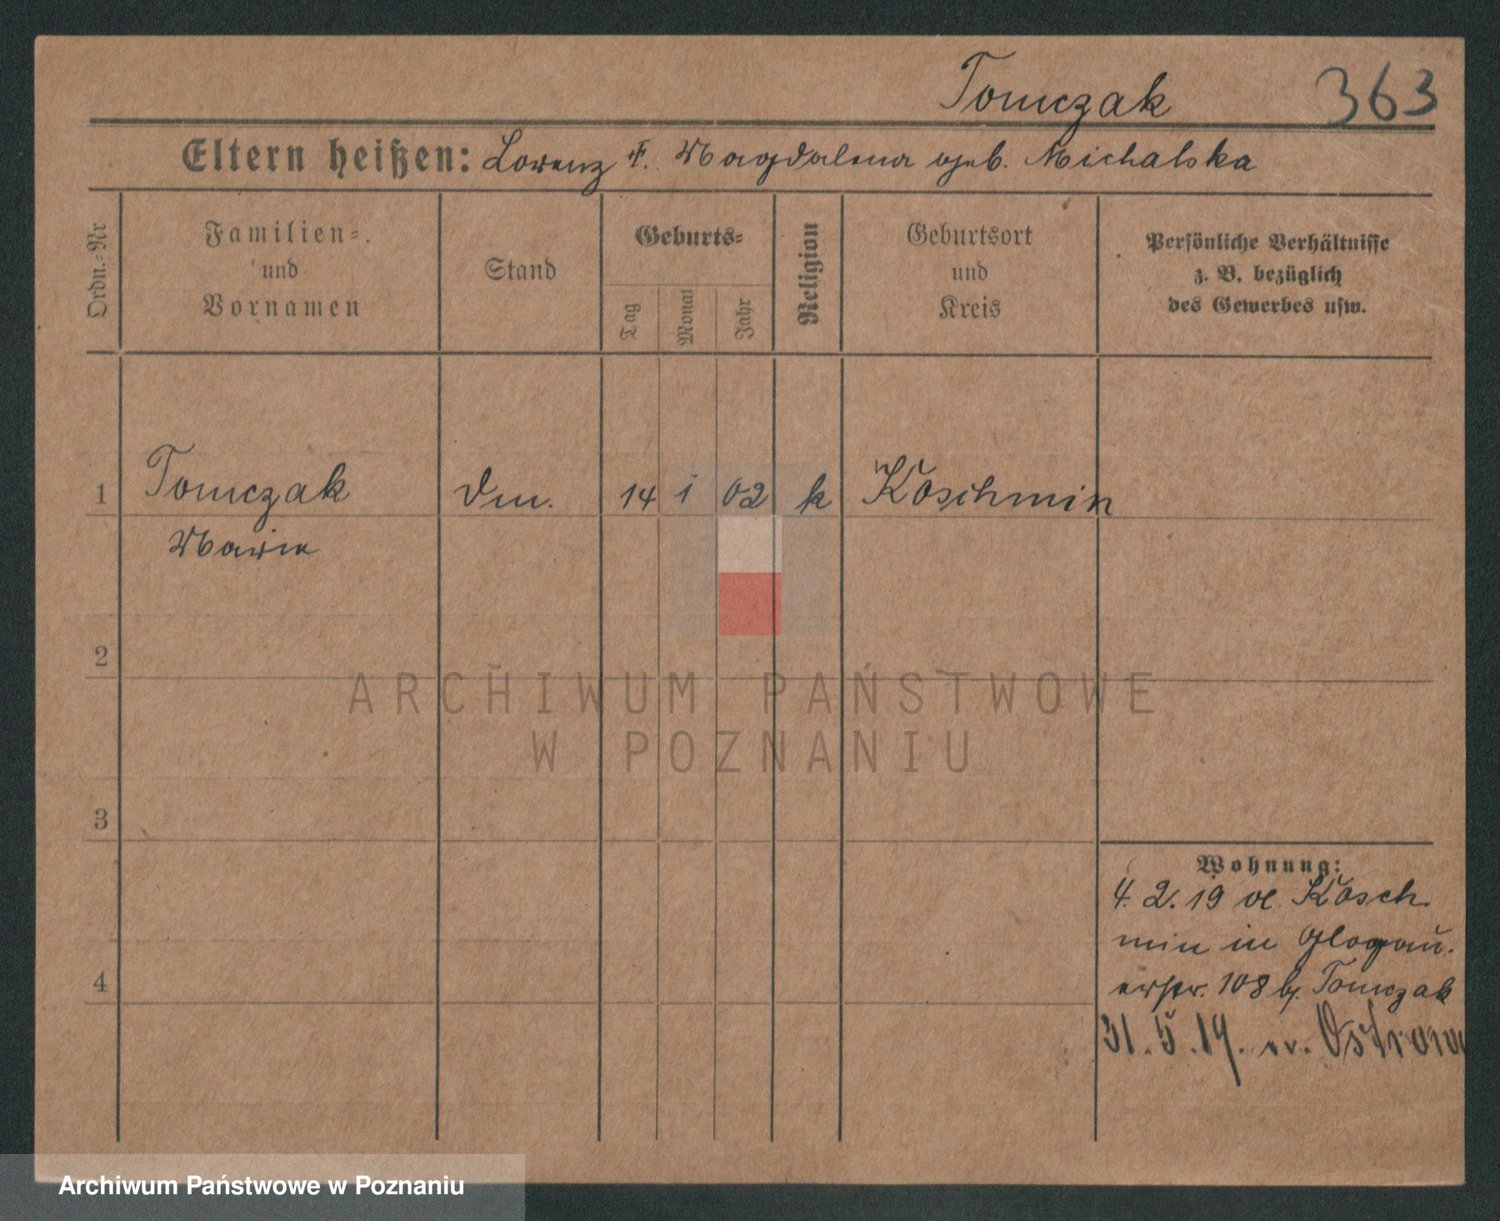 Tomczak 363
Eltern heißen: Lorenz u. Magdalena geb. Michalska
Ordn.-Nr
Familien-
und
Vornamen
Stand
Geburts-
Tag
Monat
Jahr
Religion
Geburtsort
und
Kreis
Persönliche Verhältnisse
z. B. bezüglich
des Gewerbes usw.
1 Tomczak 14 1 02 k Koschmin
Marie
2
ARCHIWUM PAŃSTWOWE
W POZNANIU
3
Wohnung:
4. 2. 19 Kosch-
min in Glogau.
108 b. Tomczak
4
31. 5. 19. Ostrowo
Archiwum Państwowe w Poznaniu